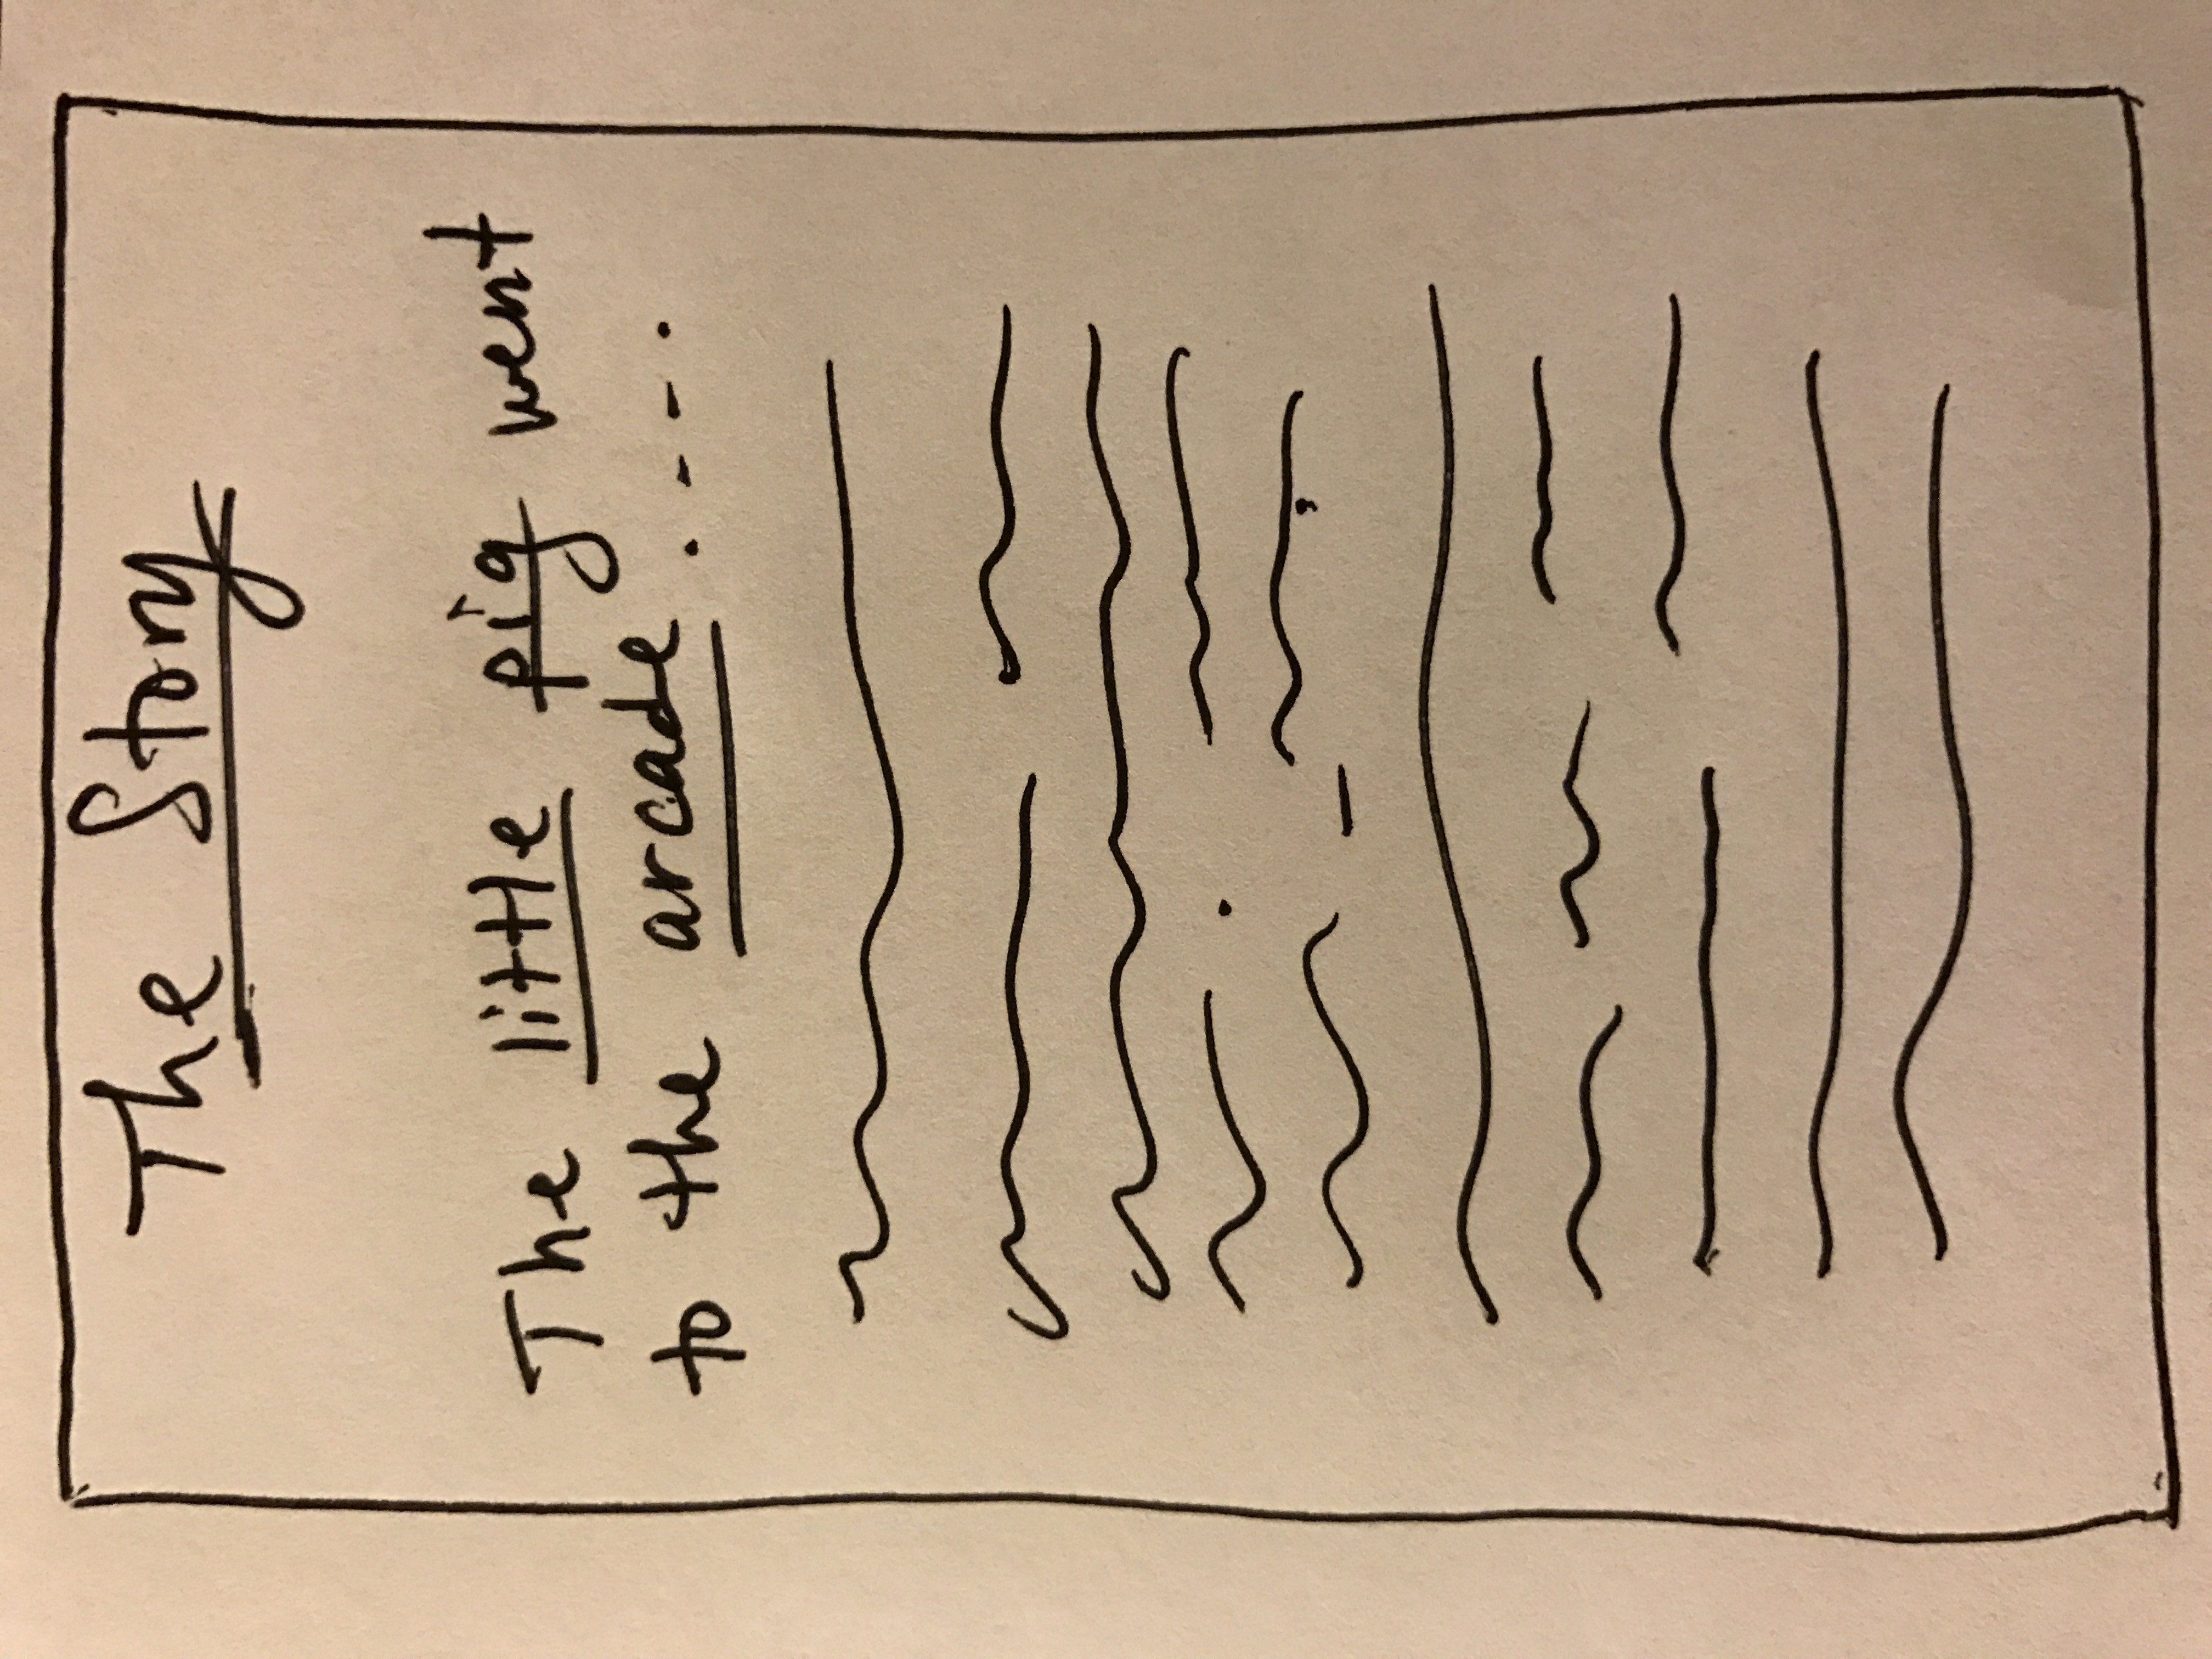 The Story
The little pig went
to the arcade . . . .